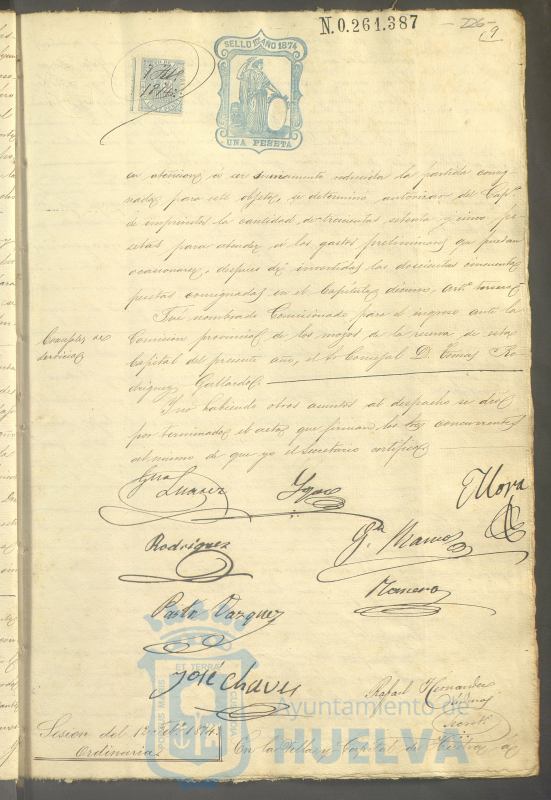 N.0.261.387
226
9
SELLO 12º AÑO 1874
UNA PESETA
7 Feb.
1874
en atencion á ser sumamente reducida la partida consig-
nada para este objeto, se determinó autorizar del Cap.º
de imprevistos la cantidad de trescientas setenta y cinco pe-
setas para atender á los gastos preliminares que puedan
ocasionarse, despues de invertidas las doscientas cincuenta
pesetas consignadas en el Capitulo décimo, Artº. tercero
Comisionado
Fué nombrado Comisionado para el ingreso ante la
Comision provincial de los mozos de la reserva de esta
Capital del presente año, el Sr Concejal D. Tomas Ro-
driguez Gallardo
Y no habiendo otros asuntos al despacho se dió
por terminada el acta que firman los Sres concurrentes
al mismo de que yo el Secretario certifico
Suarez
Mora
Rodriguez
G.ª Marco
Romero
Pablo Vazquez
José Chaves
Rafael Hernandez
Sesion del 12 Febº 1874
Ordinaria
En la Villa y Capital de Huelva á
ET TERRÆ
PORTUS MARIS
CUSTODIA
Ayuntamiento de
HUELVA